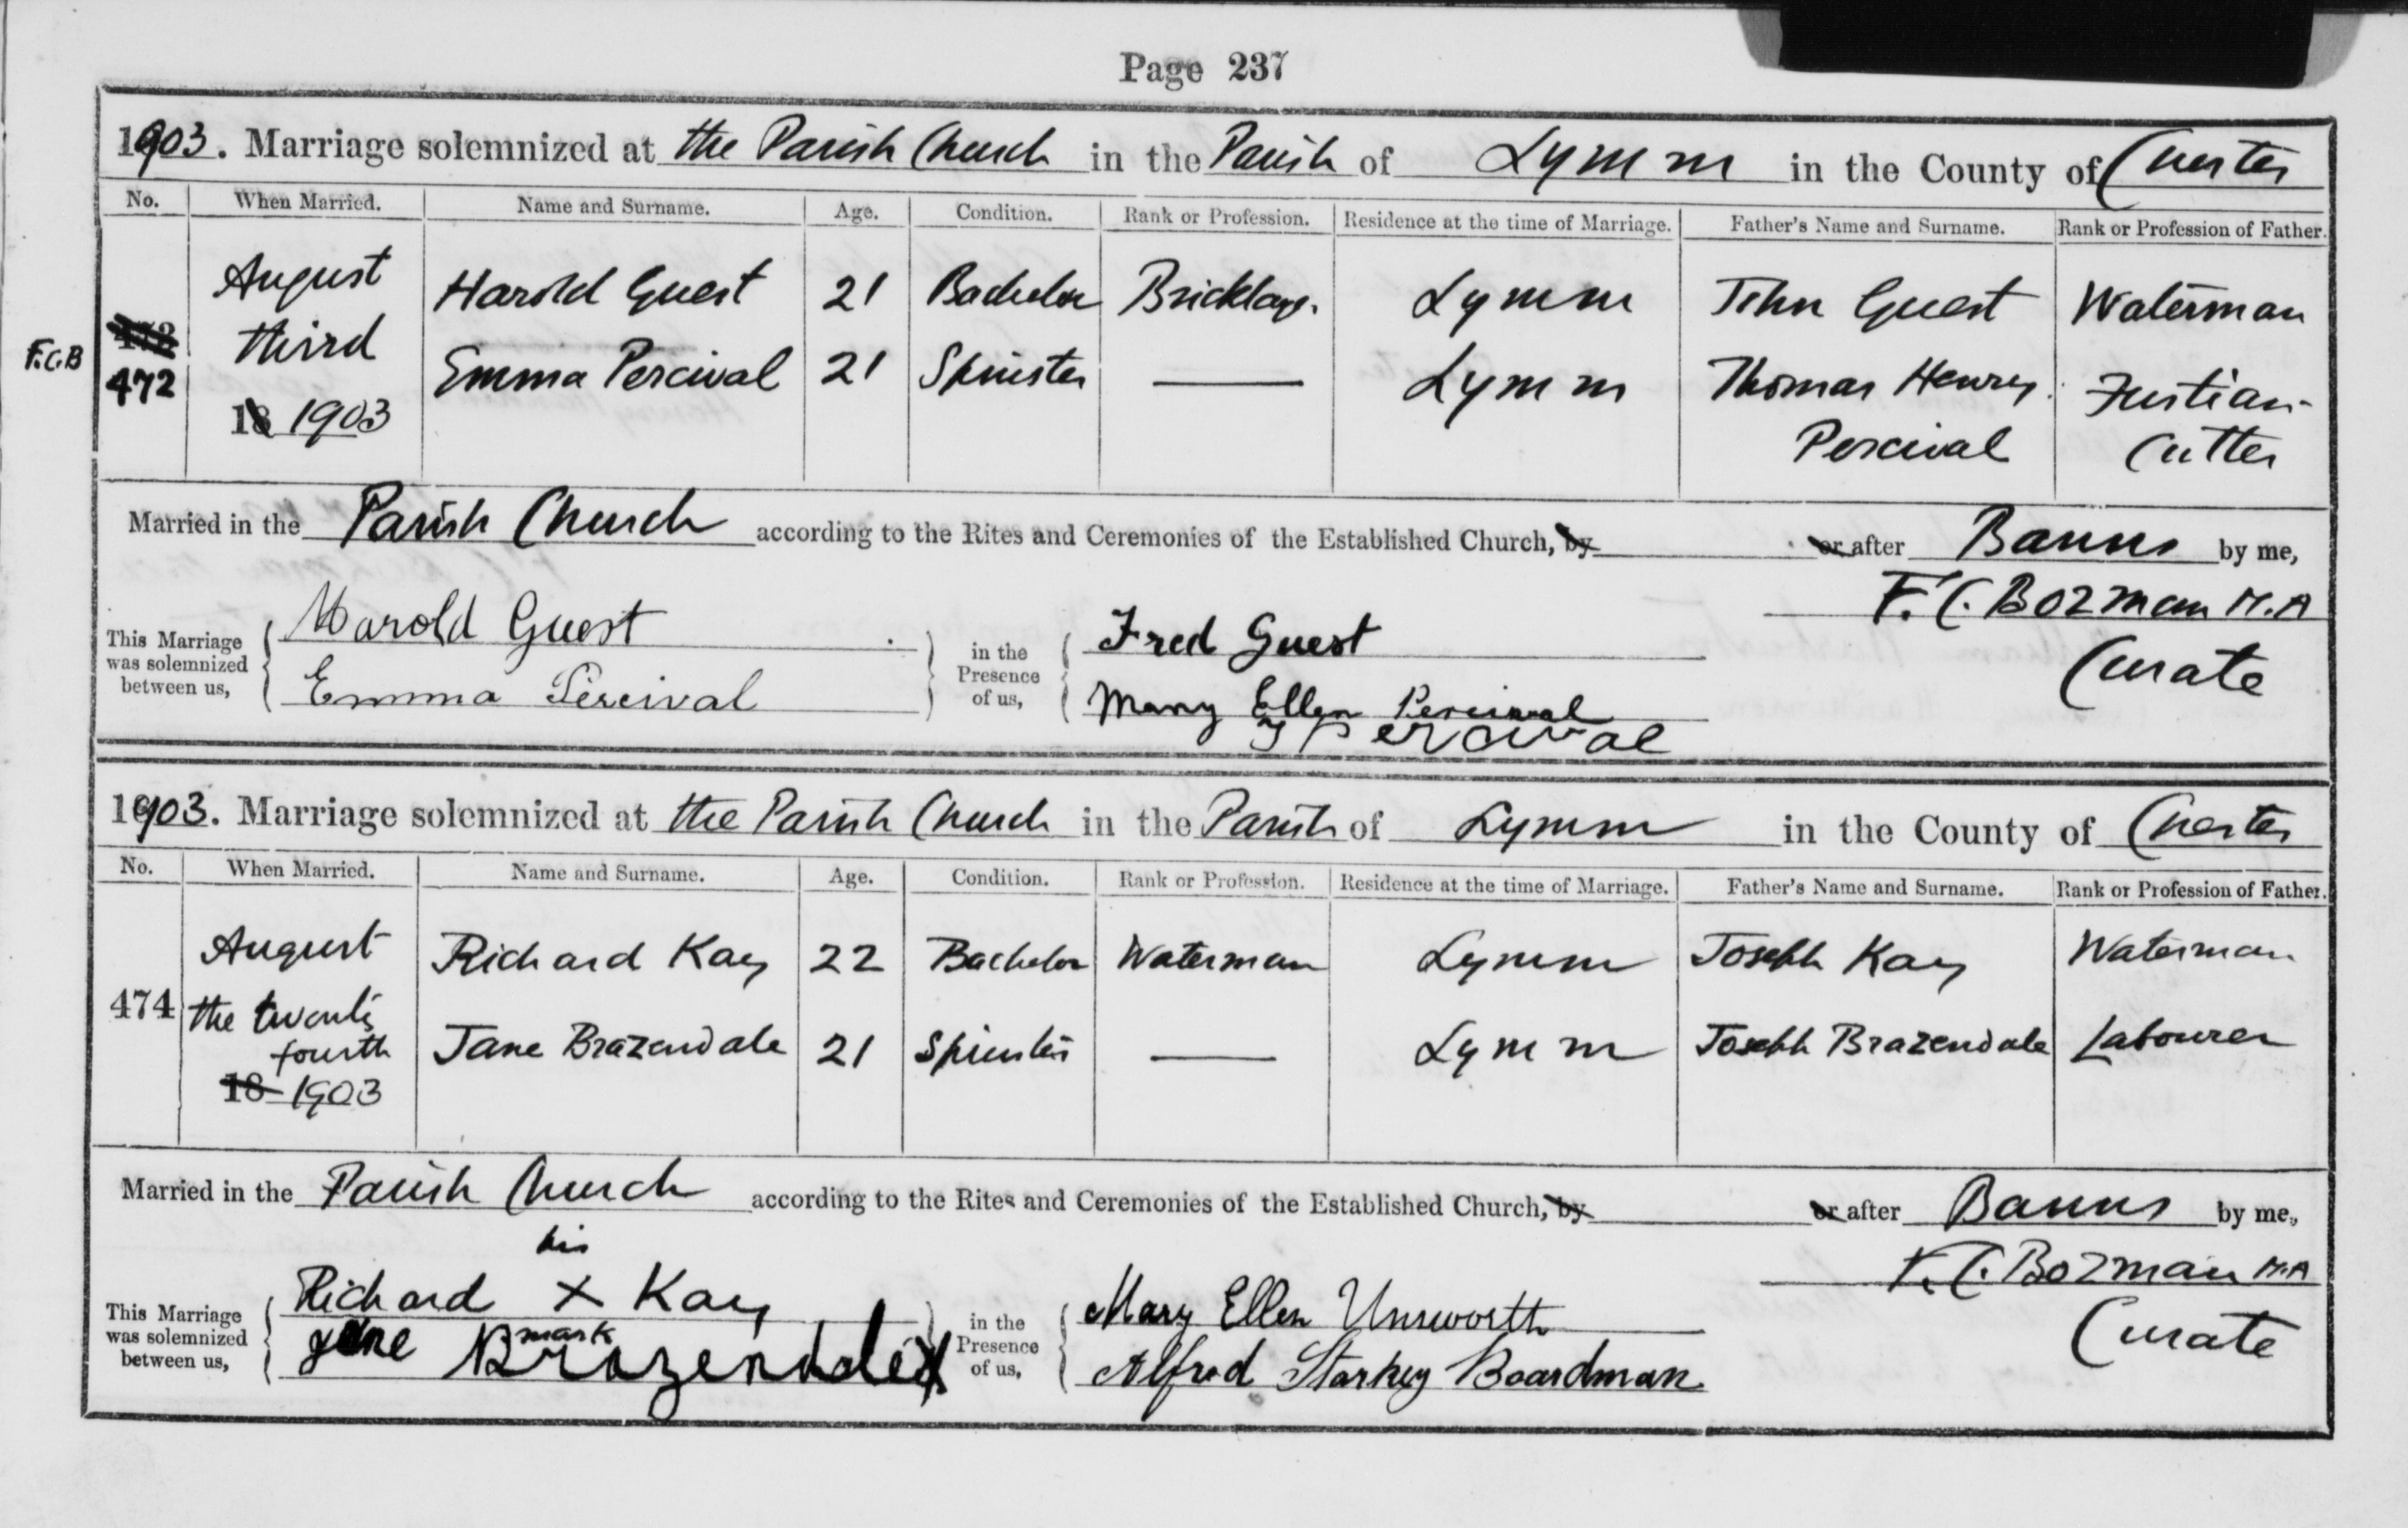 Page 237
1903. Marriage solemnized at the Parish Church in the Parish of Lymm in the County of Chester
No. When Married. Name and Surname. Age. Condition. Rank or Profession. Residence at the time of Marriage. Father's Name and Surname. Rank or Profession of Father.
August Harold Guest 21 Bachelor Bricklayr. Lymm John Guest Waterman
F.C.B 472 third Emma Percival 21 Spinster Lymm Thomas Henry Fustian-
18 1903 Percival Cutter
Married in the Parish Church according to the Rites and Ceremonies of the Established Church, by or after Banns by me,
F. C. Bozman M.A
Curate
This Marriage was solemnized between us, Harold Guest in the Presence of us, Fred Guest
Emma Percival Mary Ellen Percival
J Percival
1903. Marriage solemnized at the Parish Church in the Parish of Lymm in the County of Chester
No. When Married. Name and Surname. Age. Condition. Rank or Profession. Residence at the time of Marriage. Father's Name and Surname. Rank or Profession of Father.
August Richard Kay 22 Bachelor Waterman Lymm Joseph Kay Waterman
474 the twenty Jane Brazendale 21 Spinster Lymm Joseph Brazendale Labourer
fourth
18 1903
Married in the Parish Church according to the Rites and Ceremonies of the Established Church, by or after Banns by me,
F. C. Bozman M.A
Curate
his
This Marriage was solemnized between us, Richard X Kay in the Presence of us, Mary Ellen Unsworth
mark
Jane Brazendale Alfred Starkey Boardman